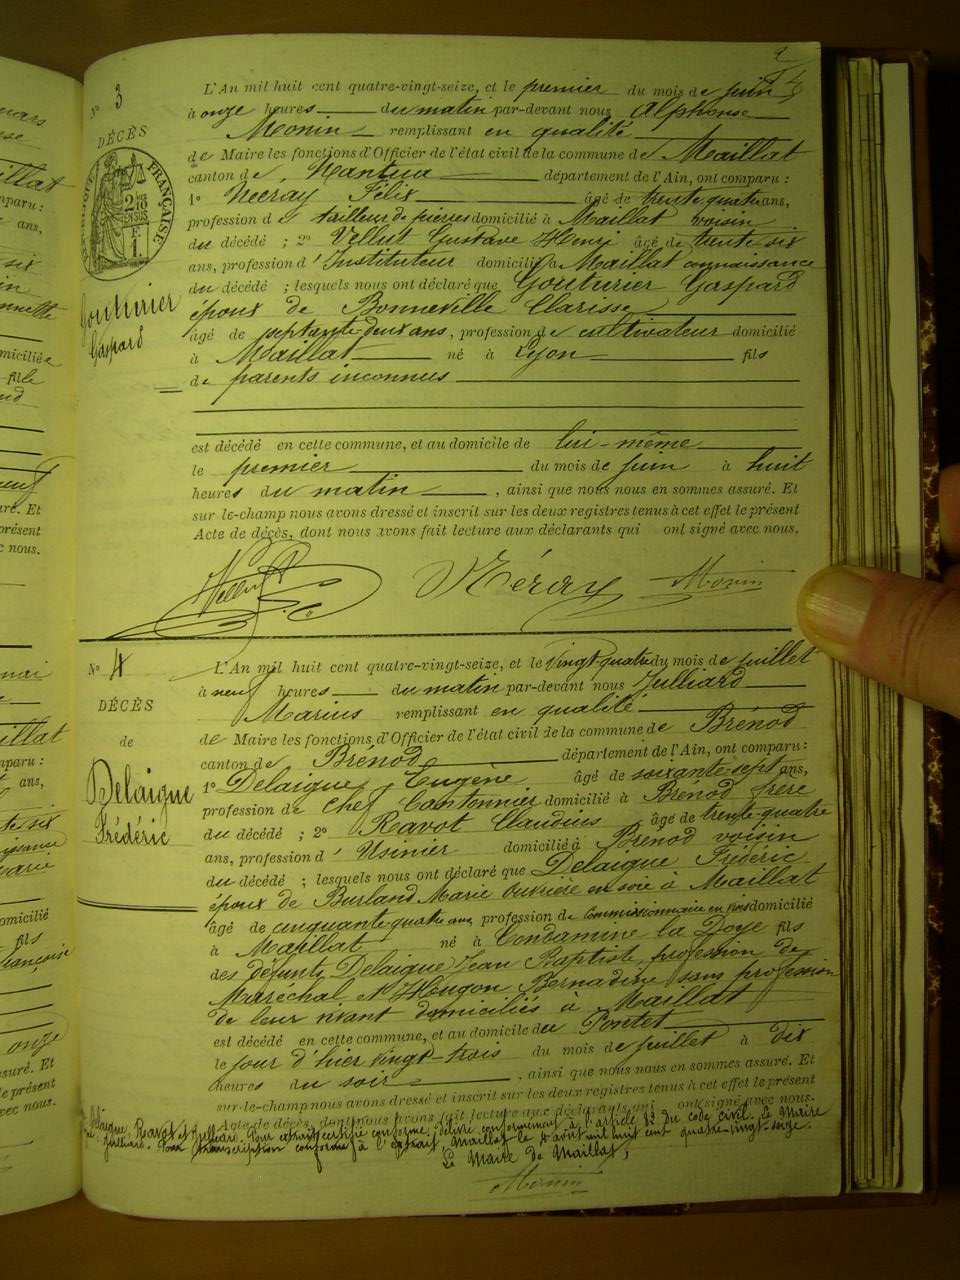 N° 3
DÉCÈS
RÉPUBLIQUE FRANÇAISE
Gouturier
Gaspard
L'An mil huit cent quatre-vingt-seize, et le premier du mois de juin
à onze heures du matin par-devant nous Alphonse
Monin remplissant en qualité
de Maire les fonctions d'Officier de l'état civil de la commune de Maillat
canton de Nantua département de l'Ain, ont comparu :
1° Neeray Félix âgé de trente quatre ans,
profession de tailleur de pierres domicilié à Maillat voisin
du décédé ; 2° Vellut Gustave Henri âgé de trente six
ans, profession d'Instituteur domicilié à Maillat connaissance
du décédé ; lesquels nous ont déclaré que Gouturier Gaspard
époux de Bonneville Clarisse
âgé de septante deux ans, profession de cultivateur domicilié
à Maillat né à Lyon fils
de parents inconnus
est décédé en cette commune, et au domicile de lui-même
le premier du mois de juin à huit
heures du matin, ainsi que nous nous en sommes assuré. Et
sur-le-champ nous avons dressé et inscrit sur les deux registres tenus à cet effet le présent
Acte de décès, dont nous avons fait lecture aux déclarants qui ont signé avec nous.
Vellut Méray Monin
N° 4
DÉCÈS
de
Delaigue
Frédéric
L'An mil huit cent quatre-vingt-seize, et le vingt-quatre du mois de juillet
à neuf heures du matin par-devant nous Julliard
Marius remplissant en qualité
de Maire les fonctions d'Officier de l'état civil de la commune de Brénod
canton de Brénod département de l'Ain, ont comparu :
1° Delaigue Eugène âgé de soixante-sept ans,
profession de chef Cantonnier domicilié à Brénod frère
du décédé ; 2° Ravot Claudius âgé de trente-quatre
ans, profession d'Usinier domicilié à Brénod voisin
du décédé ; lesquels nous ont déclaré que Delaigue Frédéric
époux de Burland Marie Ouvrière en soie à Maillat
âgé de cinquante-quatre ans, profession de Commissionnaire en domicilié
à Maillat né à Condamine la Doye fils
des défunts Delaigue Jean Baptiste, profession de
Maréchal et Hugon Bernadine sans profession
de leur vivant domiciliés à Maillat
est décédé en cette commune, et au domicile du Pontet
le jour d'hier vingt-trois du mois de juillet à dix
heures du soir, ainsi que nous nous en sommes assuré. Et
sur-le-champ nous avons dressé et inscrit sur les deux registres tenus à cet effet le présent
Acte de décès, dont nous avons fait lecture aux déclarants qui ont signé avec nous.
Delaigue, Ravot et Julliard. Pour extrait certifié conforme, délivré conformément à l'article 82 du code civil. Le Maire
Julliard. Pour transcription conforme à l'extrait, Maillat le 4 août mil huit cent quatre-vingt-seize.
Le Maire de Maillat,
Monin